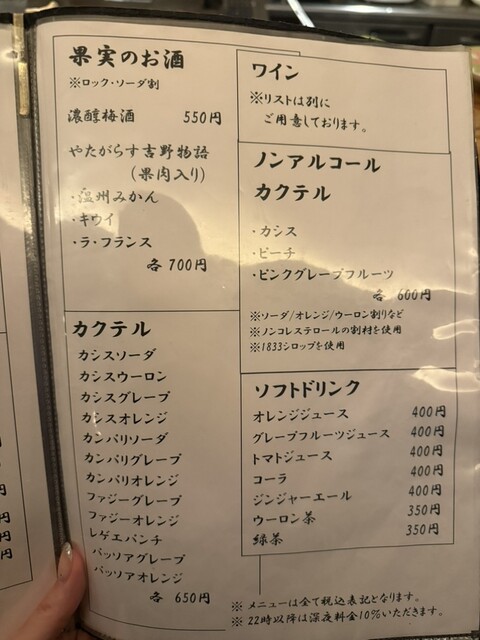 果実のお酒
※ロック・ソーダ割
濃醇梅酒 550円
やたがらす吉野物語
(果肉入り)
・温州みかん
・キウイ
・ラ・フランス
各 700円
カクテル
カシスソーダ
カシスウーロン
カシスグレープ
カシスオレンジ
カンパリソーダ
カンパリグレープ
カンパリオレンジ
ファジーグレープ
ファジーオレンジ
レゲエパンチ
パッソアグレープ
パッソアオレンジ
各 650円
ワイン
※リストは別に
ご用意しております。
ノンアルコール
カクテル
・カシス
・ピーチ
・ピンクグレープフルーツ
各 600円
※ソーダ/オレンジ/ウーロン割りなど
※ノンコレステロールの割材を使用
※1833シロップを使用
ソフトドリンク
オレンジジュース 400円
グレープフルーツジュース 400円
トマトジュース 400円
コーラ 400円
ジンジャーエール 400円
ウーロン茶 350円
緑茶 350円
※ メニューは全て税込表記となります。
※ 22時以降は深夜料金10%いただきます。